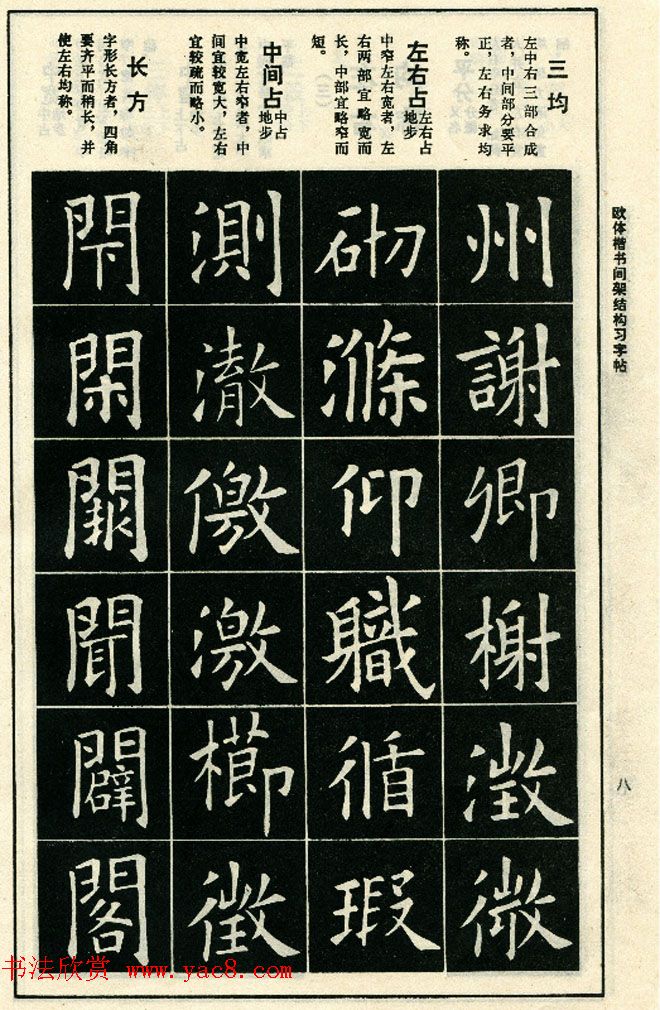 欧体楷书间架结构习字帖
八
三均
左中右三部合成
者，中间部分要平
正，左右务求均
称。
左右占地步
左右占
中窄左右宽者，左
右两部宜略宽而
长，中部宜略窄而
短。
中间占地步
中占
中宽左右窄者，中
间宜较宽大，左右
宜较疏而略小。
长方
字形长方者，四角
要齐平而稍长，并
使左右均称。
州謝卿榭澂微
砌滌仰職循瑕
測澈儌激櫛徵
閇閑闞聞闢閣
书法欣赏 www.yac8.com